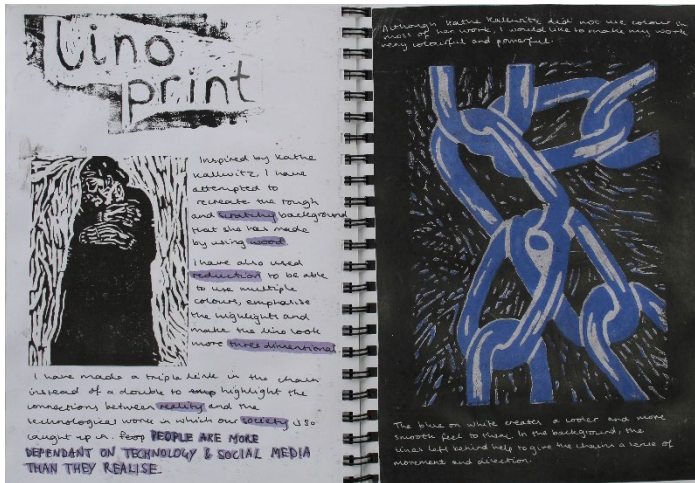 Lino
print
Inspired by Kathe
Kallwitz I have
attempted to
recreate the rough
and scratchy background
that she has made
by using wood.
I have also used
reduction to be able
to use multiple
colours, emphasise
the highlights and
make the lino look
more three dimentional.
I have made a triple link in the chain
instead of a double to highlight the
connections between reality and the
technological work in which our society is so
caught up in. PEOPLE ARE MORE
DEPENDANT ON TECHNOLOGY & SOCIAL MEDIA
THAN THEY REALISE.
Although Kathe Kallwitz did not use colour in
most of her work, I would like to make my work
very colourful and powerful.
The blue on white creates a cooler and more
smooth feel to them. In the background, the
lines left behind help to give the chains a sense of
movement and direction.